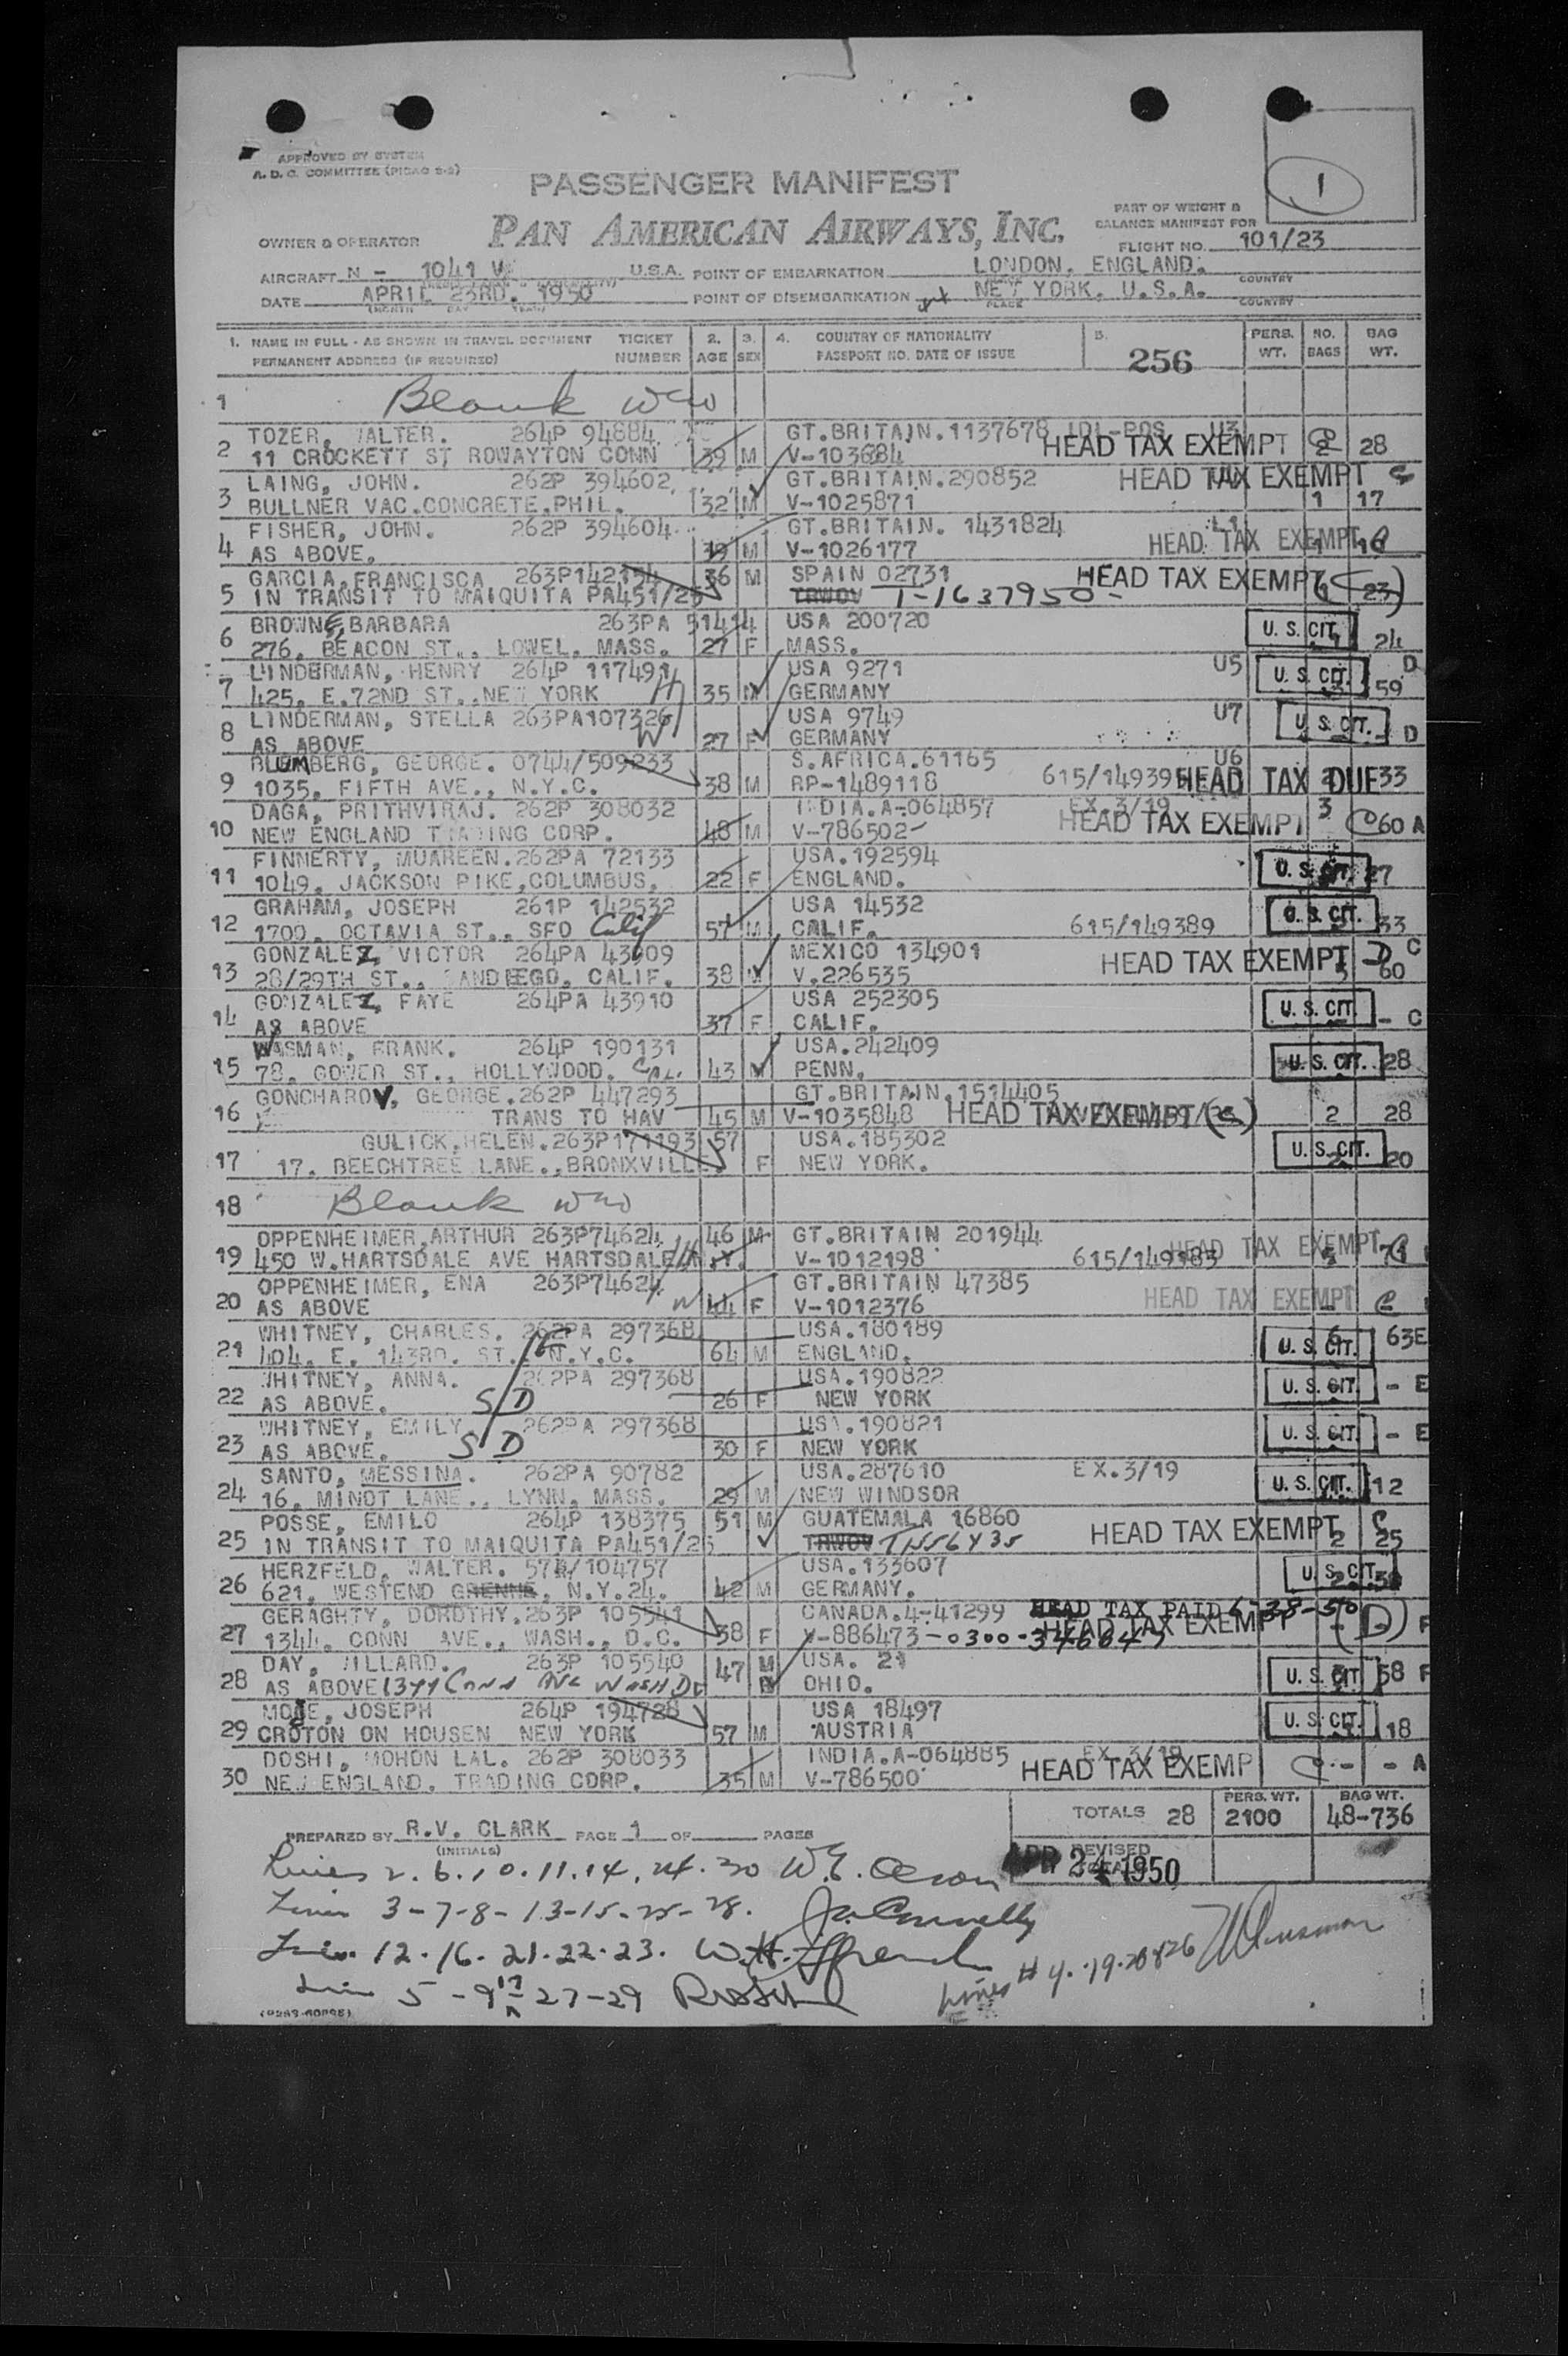 APPROVED BY SYSTEM
A. D. C. COMMITTEE (PICAO S-2)
1
PASSENGER MANIFEST
PAN AMERICAN AIRWAYS, INC.
PART OF WEIGHT &
BALANCE MANIFEST FOR
OWNER & OPERATOR FLIGHT NO. 101/23
AIRCRAFT N - 1041 V U.S.A. POINT OF EMBARKATION LONDON, ENGLAND. COUNTRY
DATE APRIL 23RD. 1950 POINT OF DISEMBARKATION NEW YORK. U.S.A. COUNTRY
(MONTH DAY YEAR) PLACE
1. NAME IN FULL - AS SHOWN IN TRAVEL DOCUMENT TICKET 2. 3. 4. COUNTRY OF NATIONALITY 5. PERS. NO. BAG
PERMANENT ADDRESS (IF REQUIRED) NUMBER AGE SEX PASSPORT NO. DATE OF ISSUE 256 WT. BAGS WT.
1 Blank
TOZER, WALTER. 264P 94884 GT.BRITAIN.1137678 U3
2 11 CROCKETT ST ROWAYTON CONN 39 M V-103684 HEAD TAX EXEMPT 2 28
LAING, JOHN. 262P 394602 GT.BRITAIN.290852 HEAD TAX EXEMPT
3 BULLNER VAC.CONCRETE.PHIL. 32 M V-1025871 1 17
FISHER, JOHN. 262P 394604 GT.BRITAIN. 1431824
4 AS ABOVE. 39 M V-1026177 HEAD TAX EXEMPT
GARCIA, FRANCISCA 263P142154 36 M SPAIN 02731 HEAD TAX EXEMPT
5 IN TRANSIT TO MAIQUITA PA451/25 TRWOV T-1637950 - 23
BROWNE, BARBARA 263PA 51414 USA 200720 U. S. CIT.
6 276, BEACON ST., LOWEL. MASS. 27 F MASS. 24
LINDERMAN, HENRY 264P 117491 USA 9271 U5 U. S. CIT. D
7 425, E.72ND ST.,NEW YORK 35 M GERMANY 59
LINDERMAN, STELLA 263PA107326 USA 9749 U7 U. S. CIT.
8 AS ABOVE 27 F GERMANY D
BLUMBERG, GEORGE. 0744/509233 S.AFRICA.61165 U6
9 1035, FIFTH AVE., N.Y.C. 38 M RP-1489118 HEAD TAX DUE 33
DAGA, PRITHVIRAJ. 262P 308032 INDIA.A-064857 EX.3/19 3
10 NEW ENGLAND TRADING CORP. 48 M V-786502 HEAD TAX EXEMPT 60 A
FINNERTY, MUAREEN.262PA 72133 USA.192594
11 1049, JACKSON PIKE,COLUMBUS, 22 F ENGLAND. U. S. CIT. 27
GRAHAM, JOSEPH 261P 142532 USA 14532 U. S. CIT.
12 1700, OCTAVIA ST., SFO Calif 57 M CALIF. 615/149389 33
GONZALEZ, VICTOR 264PA 43909 MEXICO 134901 C
13 28/29TH ST., SANDIEGO, CALIF. 38 M V.226535 HEAD TAX EXEMPT 60
GONZALEZ, FAYE 264PA 43910 USA 252305 U. S. CIT.
14 AS ABOVE 37 F CALIF. - C
WASMAN, FRANK. 264P 190131 USA.242409
15 78, GOWER ST., HOLLYWOOD. CAL. 43 M PENN. U. S. CIT. 28
GONCHAROV, GEORGE.262P 447293 GT.BRITAIN.1514405
16 TRANS TO HAV 45 M V-1035848 HEAD TAX EXEMPT 2 28
GULICK,HELEN.263P171193 57 USA.185302 U. S. CIT.
17 17. BEECHTREE LANE.,BRONXVILLE. F NEW YORK. 20
18 Blank
OPPENHEIMER,ARTHUR 263P74624 46 M GT.BRITAIN 201944
19 450 W.HARTSDALE AVE HARTSDALE V-1012198 HEAD TAX EXEMPT
OPPENHEIMER, ENA 263P74624 GT.BRITAIN 47385
20 AS ABOVE 44 F V-1012376 HEAD TAX EXEMPT
WHITNEY, CHARLES. 262PA 297368 USA.180189 63E
21 404. E. 143RD. ST. N.Y.C. 64 M ENGLAND. U. S. CIT.
WHITNEY, ANNA. 262PA 297368 USA.190822
22 AS ABOVE. S D 26 F NEW YORK U. S. CIT. - E
WHITNEY, EMILY 262PA 297368 USA.190821
23 AS ABOVE. S D 30 F NEW YORK U. S. CIT. - E
SANTO, MESSINA. 262PA 90782 USA.287610 EX.3/19
24 16, MINOT LANE., LYNN, MASS. 29 M NEW WINDSOR U. S. CIT. 12
POSSE, EMILO 264P 138375 51 M GUATEMALA 16860
25 IN TRANSIT TO MAIQUITA PA451/25 TRWOV HEAD TAX EXEMPT 2 25
HERZFELD, WALTER. 574/104757 USA.133607
26 621, WESTEND GRENNE, N.Y.24. 42 M GERMANY. U. S. CIT.
GERAGHTY, DOROTHY.263P 105541 CANADA.4-41299 HEAD TAX PAID
27 1344. CONN AVE., WASH., D.C. 38 F V-886473 HEAD TAX EXEMPT F
DAY, WILLARD. 263P 105540 47 M USA. 21
28 AS ABOVE 1344 CONN AVE WASH DC OHIO. U. S. CIT. 58 F
MODE, JOSEPH 264P 194728 USA 18497
29 CROTON ON HOUSEN NEW YORK 57 M AUSTRIA U. S. CIT. 18
DOSHI, MOHON LAL. 262P 308033 INDIA.A-064885 EX.3/19
30 NEW ENGLAND. TRADING CORP. 35 M V-786500 HEAD TAX EXEMP - - A
TOTALS 28 PERS. WT. 2100 BAG WT. 48-736
PREPARED BY R.V. CLARK PAGE 1 OF PAGES
(INITIALS)
REVISED
TOTALS
APR 24 1950
Lines 2. 6. 10. 11. 14. 24. 30 W.E. Olson
Lines 3-7-8-13-15-25-28. Connelly
Lines 12. 16. 21. 22. 23. W.H. Ffrench
Lines # 4. 19. 20 & 26
Lines 5 - 9 17 27-29